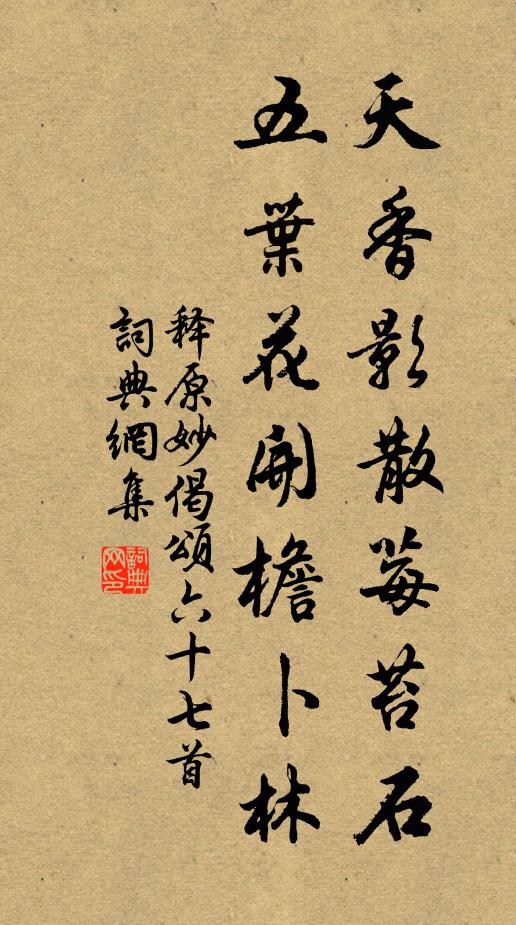 天香影散莓苔石
五葉花開檐卜林
释原妙偈頌六十七首
詞典網集
詞典網印